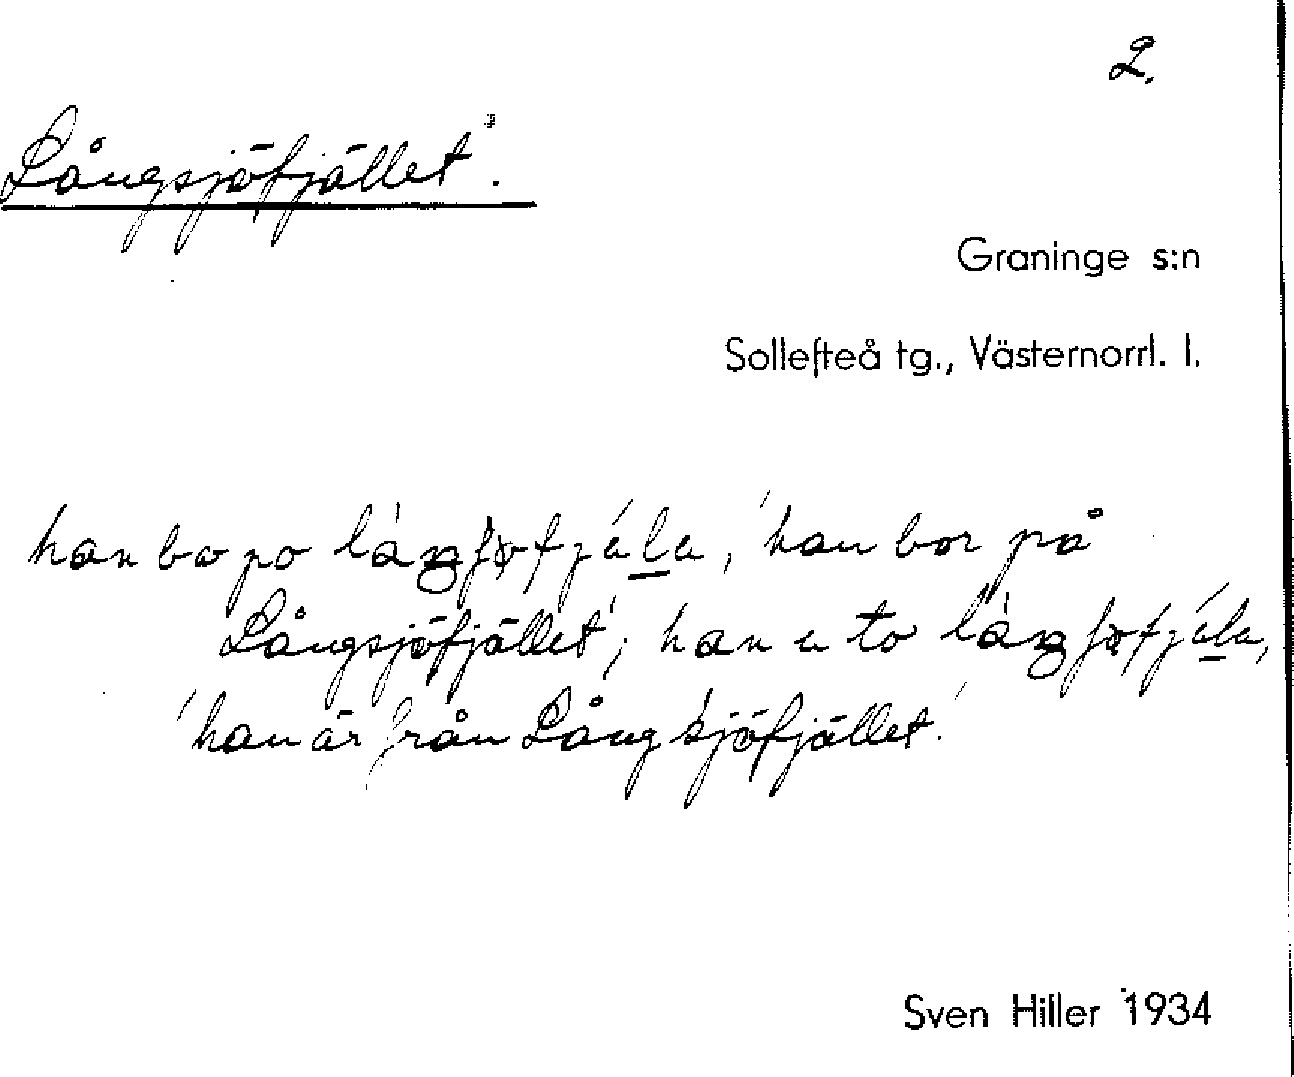 2.
Långsjöfjället.
Graninge s:n
Sollefteå tg., Västernorrl. l.
han bo po , 'han bor på
Långsjöfjället'; han to
'han är från Långsjöfjället.'
Sven Hiller 1934